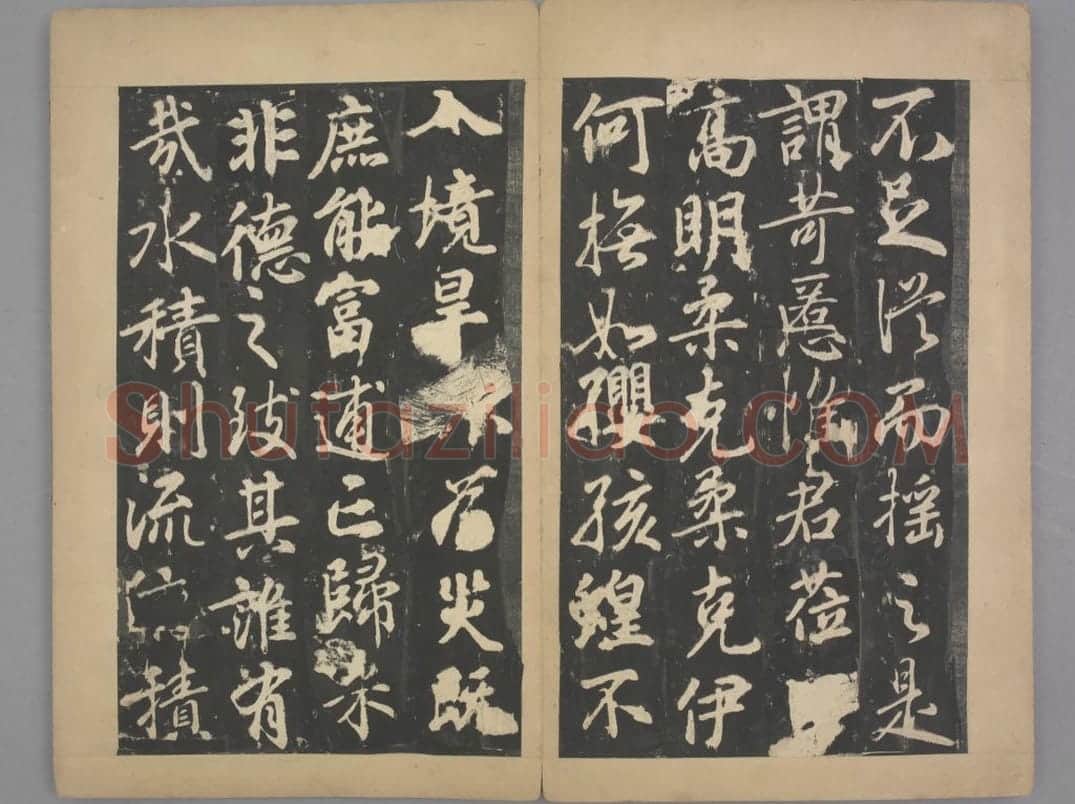 不足從而搖之是
謂苛慝惟君蒞
高明柔克柔克伊
何撫如孾孩蝗不
入境旱不為災既
庶能富逋亡歸來
非德之致其誰有
哉水積則流積
Shufaziliao.COM